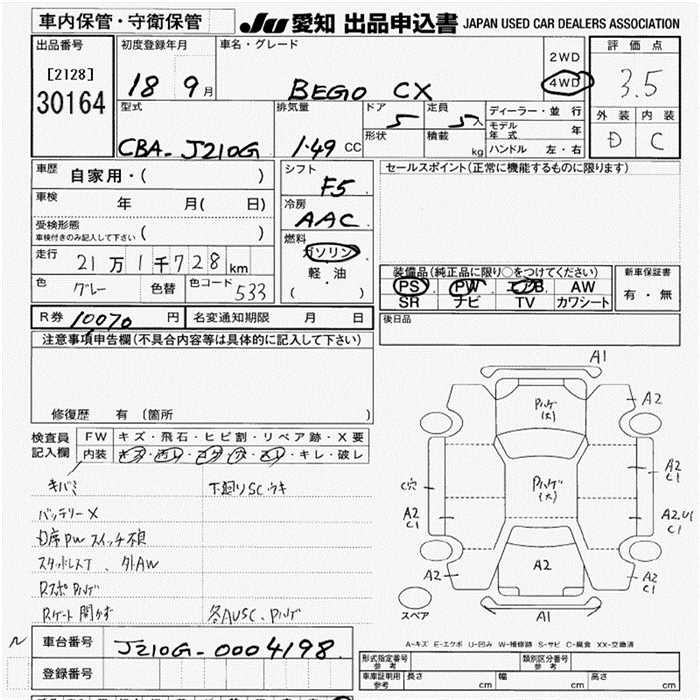 車内保管・守衛保管
JU 愛知 出品申込書 JAPAN USED CAR DEALERS ASSOCIATION
出品番号
[2128]
30164
初度登録年月
18 9月
車名・グレード
BEGO CX
2WD
4WD
評価点
3.5
外装 内装
D C
型式
CBA-J210G
排気量
1.49 CC
ドア
5
形状
定員
5人
積載
kg
ディーラー・並行
モデル年式 年
ハンドル 左・右
車歴
自家用・( )
車検
年 月( 日)
受検形態
車検付きのみ記入して下さい ( )
走行
21万1千728km
色
グレー
色替
色コード
533
シフト
F5
冷房
AAC
燃料
ガソリン
軽油
( )
セールスポイント(正常に機能するものに限ります)
装備品(純正品に限り○をつけてください)
PS PW エアB AW
SR ナビ TV カワシート
新車保証書
有・無
R券 10070円
名変通知期限 月 日
後日品
注意事項申告欄(不具合内容等は具体的に記入して下さい)
修復歴 有(箇所 )
検査員記入欄
FW キズ・飛石・ヒビ割・リペア跡・X要
内装 キズ・汚レ・コゲ・穴・スレ・キレ・破レ
キバミ
下廻りSC.ウキ
バッテリーX
D席PWスイッチ不良
スタッドレスT、外AW
Rスポハゲ
Rゲート開かず
各AUSC.ハゲ
A1
ハゲ(大)
A2
A2 C1
C穴
A2 C1
ハゲ(大)
A2.U1 C1
A2
A2
A2 C1
スペア
A1
A-キズ E-エクボ U-凹み W-補修跡 S-サビ C-腐食 XX-交換済
車台番号
J210G-0004198
登録番号
形式指定番号 参考
類別区分番号 参考
車庫証明用 参考
長さ cm
幅 cm
高さ cm